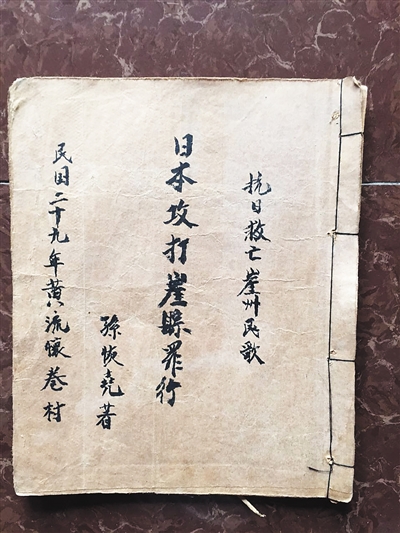 抗日救亡崖州民歌
日本攻打崖縣罪行
孫悏堯著
民国二十九年黄流懐卷村